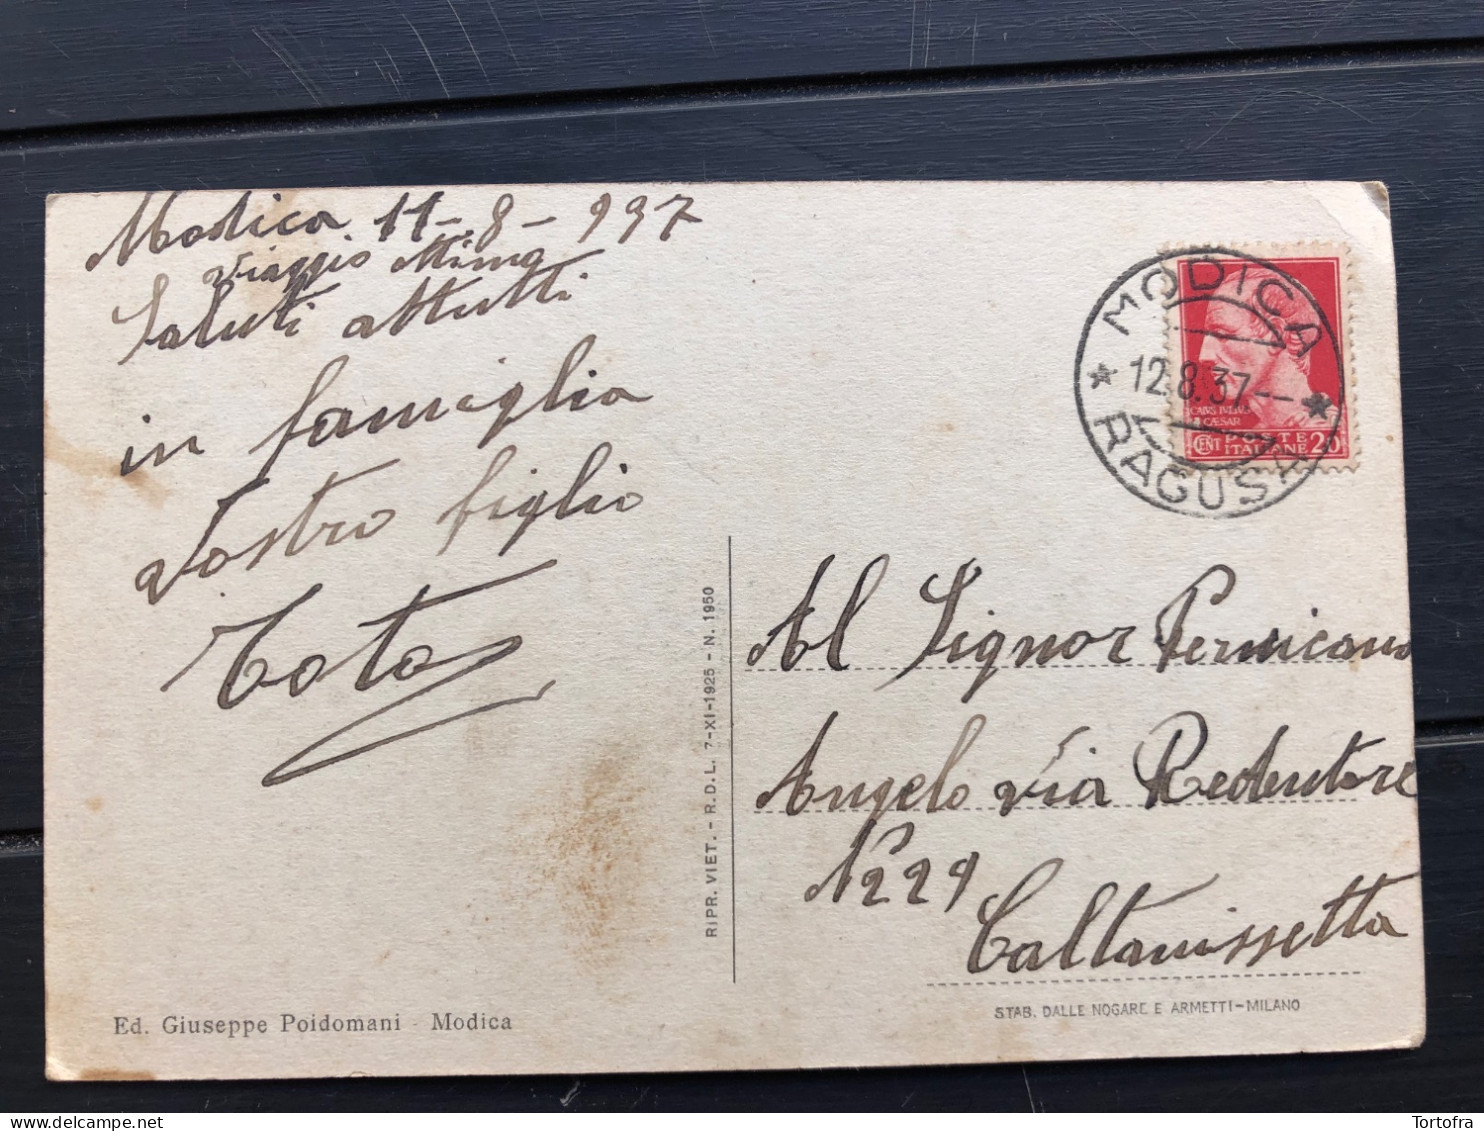 Modica 11-8-937
Viaggio ottimo
Saluti attutti
in famiglia
Vostro figlio
Toto
MODICA
12.8.37--
RAGUSA
CAIVS IVLIVS
CAESAR
CENT POSTE ITALIANE 20
Al Signor Pernicano
Angelo Via Redentore
N 229
Caltanissetta
RIPR. VIET. - R. D. L. 7-XI-1925 - N. 1950
Ed. Giuseppe Poidomani - Modica
STAB. DALLE NOGARE E ARMETTI-MILANO
Tortofra